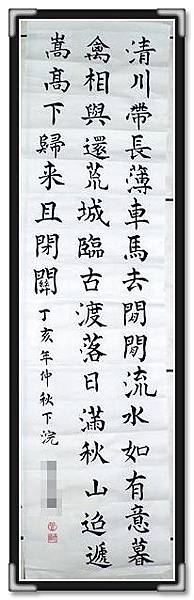 清川帶長薄車馬去閒閒流水如有意暮
禽相與還荒城臨古渡落日滿秋山迢遞
嵩高下歸来且閉關丁亥年仲秋下浣